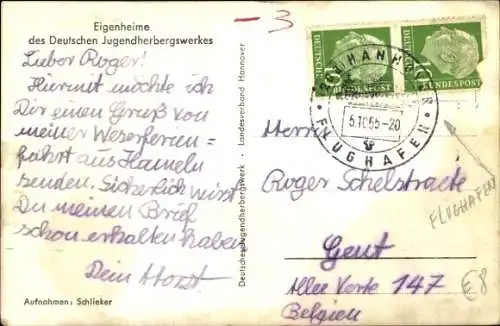 Eigenheime
des Deutschen Jugendherbergswerkes
Lieber Roger!
Hiermit möchte ich
Dir einen Gruß von
meiner Weserferien=
fahrt aus Hameln
senden. Sicherlich wirst
Du meinen Brief
schon erhalten haben
Dein Horst
Aufnahmen: Schlieker
Deutsches Jugendherbergswerk · Landesverband Hannover
- 3
DEUTSCHE
10
10
BUNDESPOST
HANN
5.10.55-20
FLUGHAFEN
Herrn
Roger Schelstraete
Gent
Allee Verte 147
Belgien
FLUGHAFEN
€8